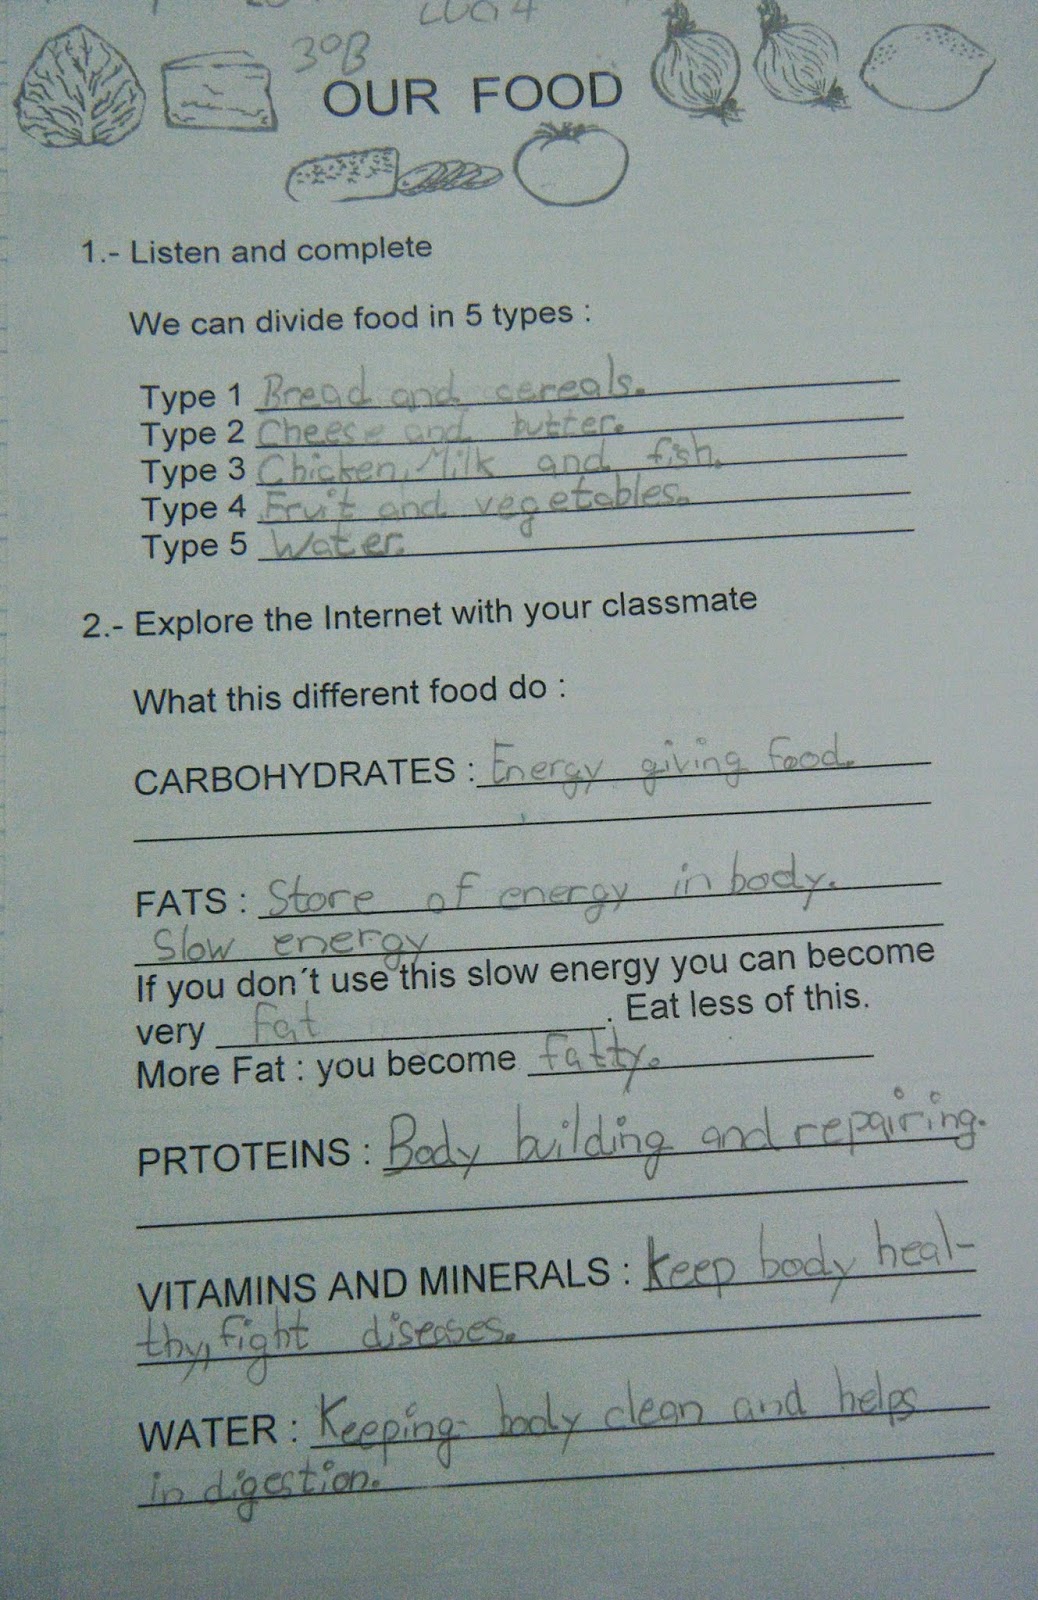 3ºB
OUR FOOD
1.- Listen and complete
We can divide food in 5 types :
Type 1 Bread and cereals.
Type 2 Cheese and butter.
Type 3 Chicken, Milk and fish.
Type 4 Fruit and vegetables.
Type 5 Water.
2.- Explore the Internet with your classmate
What this different food do :
CARBOHYDRATES : Energy giving food.
FATS : Store of energy in body.
Slow energy
If you don´t use this slow energy you can become
very fat . Eat less of this.
More Fat : you become fatty.
PRTOTEINS : Body building and repairing.
VITAMINS AND MINERALS : Keep body heal-
thy, fight diseases.
WATER : Keeping body clean and helps
in digestion.